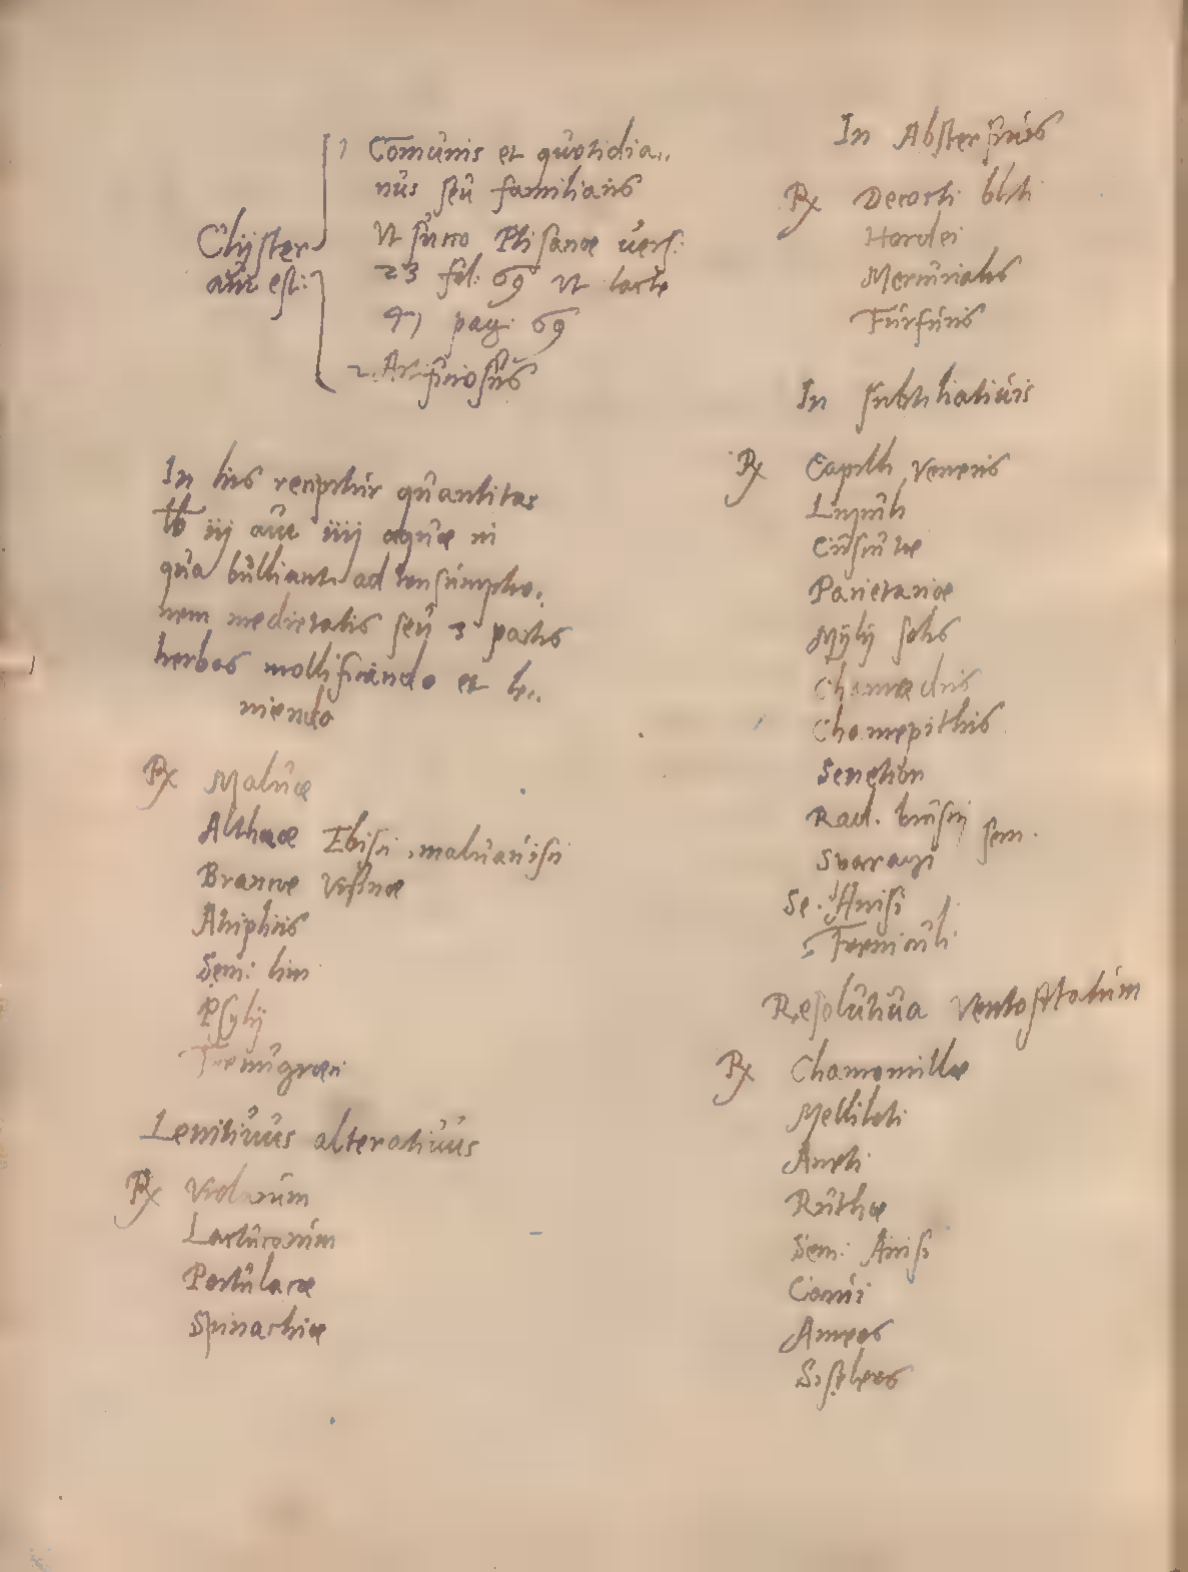 Clijster
aût est:
1 Comûnis et quotidia..
nûs seû familiaris
Ut succo Ptisanæ vers:
23 fol: 69 Ut lacte
47 pag: 69
2.
In his recipitur quantitas
lb iij aût iiij aquæ in
qua bulliant ad consumptio..
nem medietatis seû 3 partis
herbas mollificando et le..
niendo
Rx Malvæ
Althææ Ibisci, malvavisci
Brancæ Ursinæ
Atriplicis
Sem: lini
Psylij
Fœnugræci
Lenitivus alterativus
Rx Violarum
Lactucarum
Portulacæ
Spinachiæ
In Abstersivis
Rx Decocti bliti
Hordei
Mercurialis
Furfuris
In subtiliativis
Rx Capilli Veneris
Lupuli
Cuscutæ
Parietariæ
Mylij solis
Chamædris
Chamepithis
Senetion
Rad. brusci
Sparagi sem.
Se. Anisi
Fœniculi
Resolutiva Ventositatum
Rx Chamomillæ
Melliloti
Aneti
Ruthæ
Sem: Anisi
Carui
Ameos
Siseleos